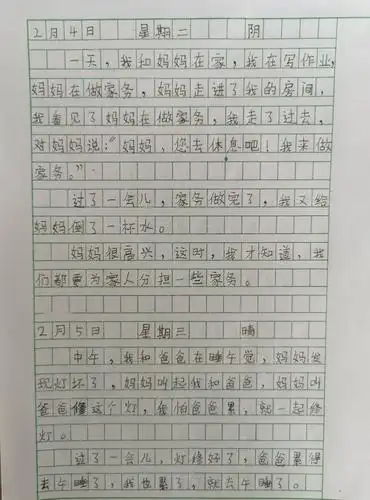 2月4日 星期二 阴
一天，我和妈妈在家，我在写作业，
妈妈在做家务，妈妈走进了我的房间，
我看见了妈妈在做家务，我走了过去，
对妈妈说：“妈妈，您去休息吧！我来做
家务。”
过了一会儿，家务做完了，我又给
妈妈倒了一杯水。
妈妈很高兴，这时，我才知道，我
们都要为家人分担一些家务。
2月5日 星期三 晴
中午，我和爸爸在睡午觉，妈妈发
现灯坏了，妈妈叫起我和爸爸，妈妈叫
爸爸修这个灯，我怕爸爸累，就一起修
灯。
过了一会儿，灯修好了，爸爸累得
去午睡了，我也累了，就去午睡了。